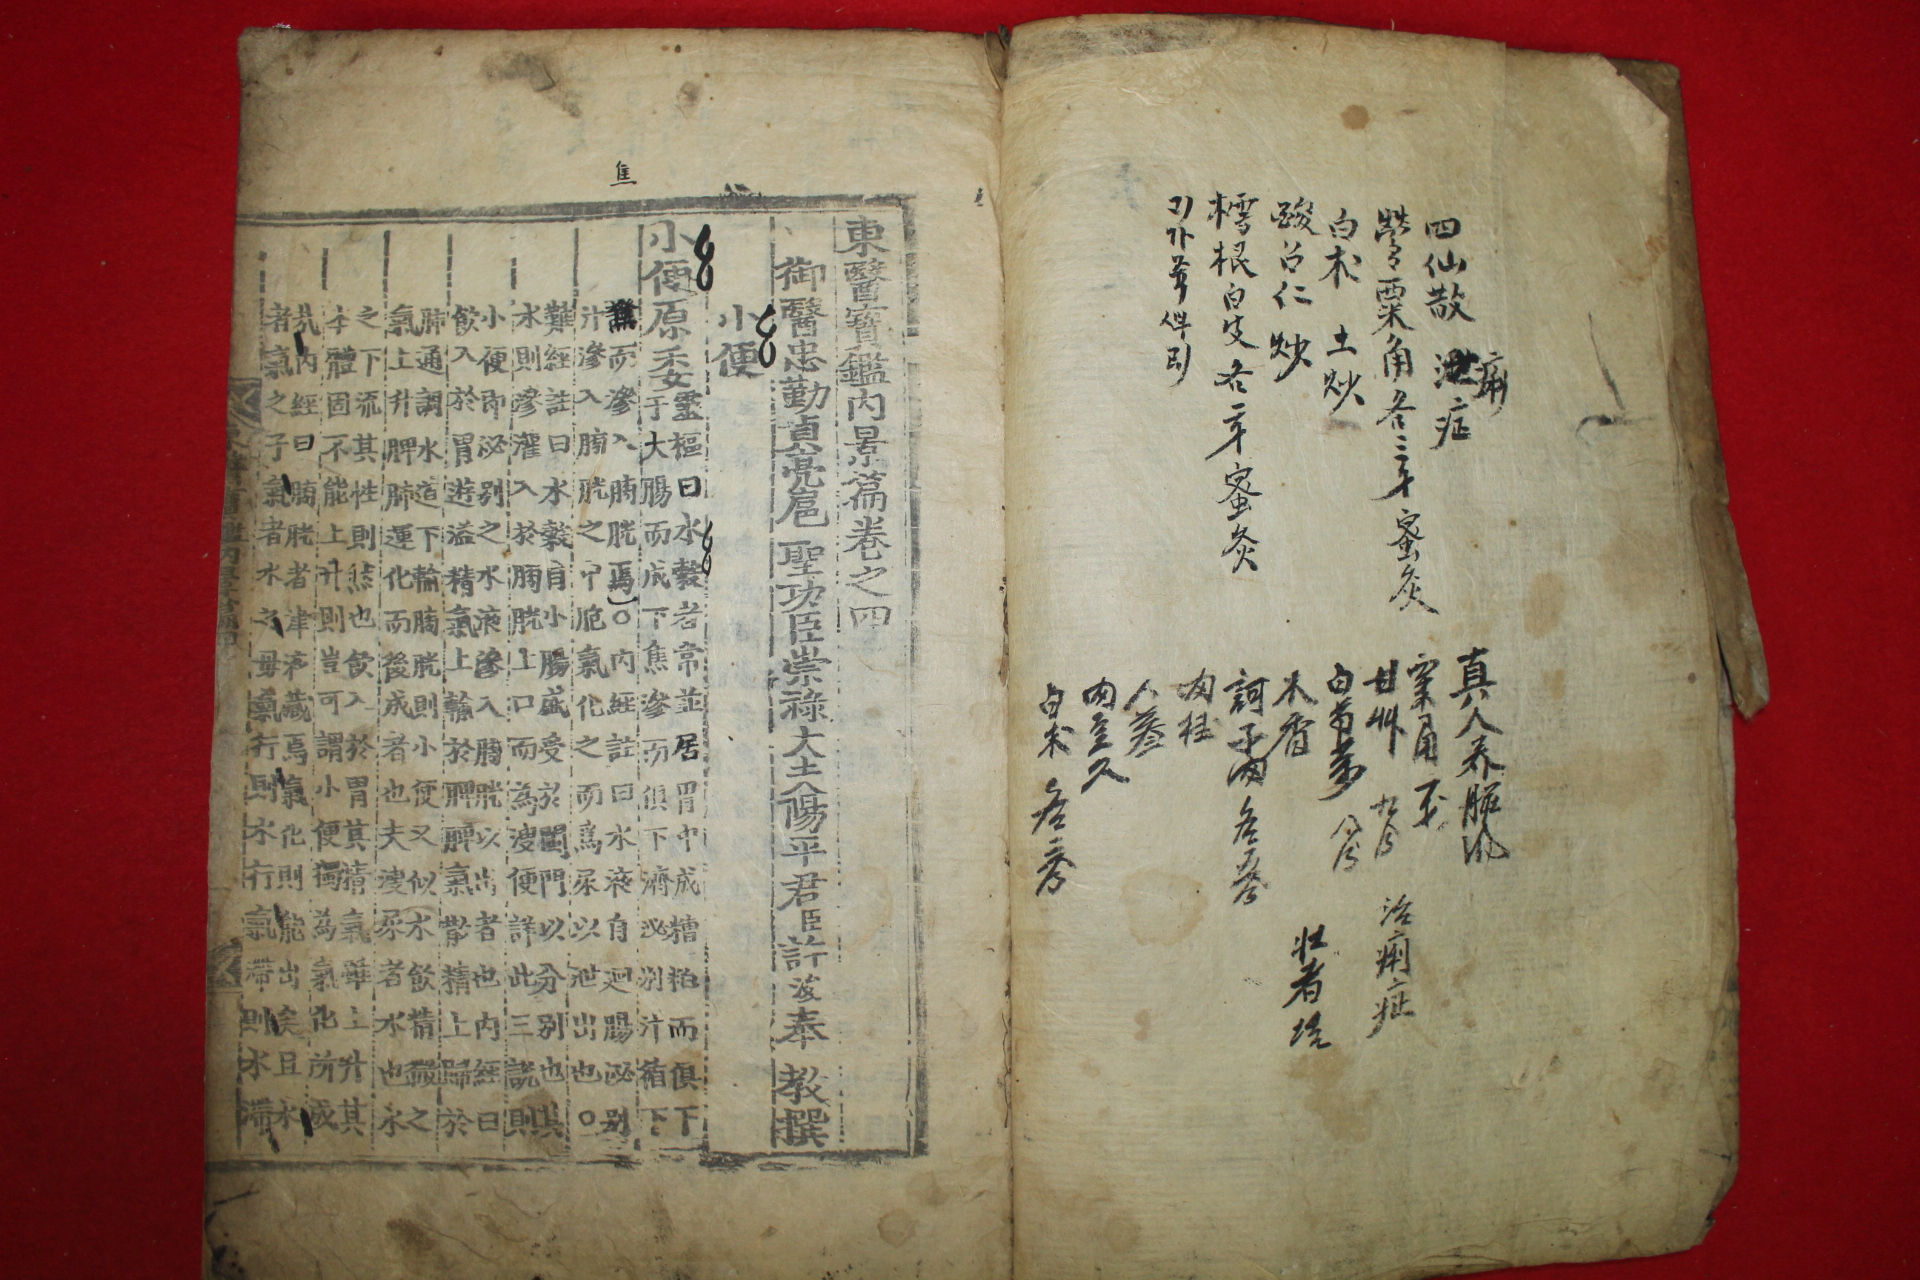 四仙散 治痢症
罌粟角各三戔 蜜灸
白朮 土炒
酸召仁 炒
樗根白皮各二戔 蜜灸
真人养脏汤 治痢症
粟角
甘艸 九分
白芍薬 八分
木香
訶子肉 各五分
肉桂
人蔘
肉豆久
白朮 各三分
焦
東醫寶鑑內景篇卷之四
御醫忠勤貞亮扈 聖功臣崇祿大夫陽平君臣許浚奉 敎撰
小便
小便原委 靈樞曰水穀者常並居胃中成糟粕而俱下
于大腸而成下焦滲而俱下濟泌別汁循下
焦而滲入膀胱焉○內經註曰水液自迴腸泌別
汁滲入膀胱之中胞氣化之而爲尿以泄出也○
難經註曰水穀自小腸盛受於闌門以分別也其
水則滲灌入於膀胱上口而為溲便詳此三說則
小便卽泌別之水液滲入膀胱以出者也內經曰
飮入於胃遊溢精氣上輸於脾脾氣散精上歸於
肺通調水道下輸膀胱則小便又似水飮精微之
氣上升脾肺運化而後成者也夫溲尿者水也水
之下流其性則然也飮入於胃其精氣雖上升其
本體固不能上升則豈可謂小便獨為氣化所成
哉內經曰膀胱者津液藏焉氣化則能出矣且水
者氣之子氣者水之毋氣行則水行氣滯則水滯